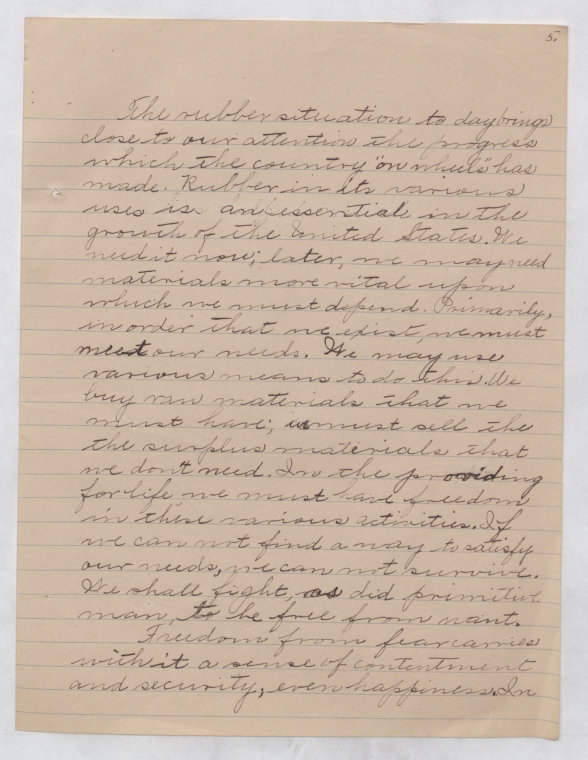 5.
The rubber situation to day brings
close to our attention the progress
which the country "on wheels" has
made. Rubber in its various
uses is an essential in the
growth of the United States. We
need it now; later, we may need
materials more vital upon
which we must depend. Primarily,
in order that we exist, we must
meet our needs. We may use
various means to do this. We
buy raw materials that we
must have; we must sell the
the surplus materials that
we don't need. In the providing
for life we must have freedom
in these various activities. If
we can not find a way to satisfy
our needs, we can not survive.
We shall fight, as did primitive
man, to be free from want.
Freedom from fear carries
with it a sense of contentment
and security, even happiness. In